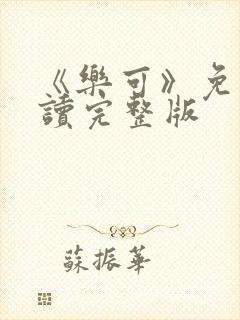 《樂可》免
讀完整版
蘇振華